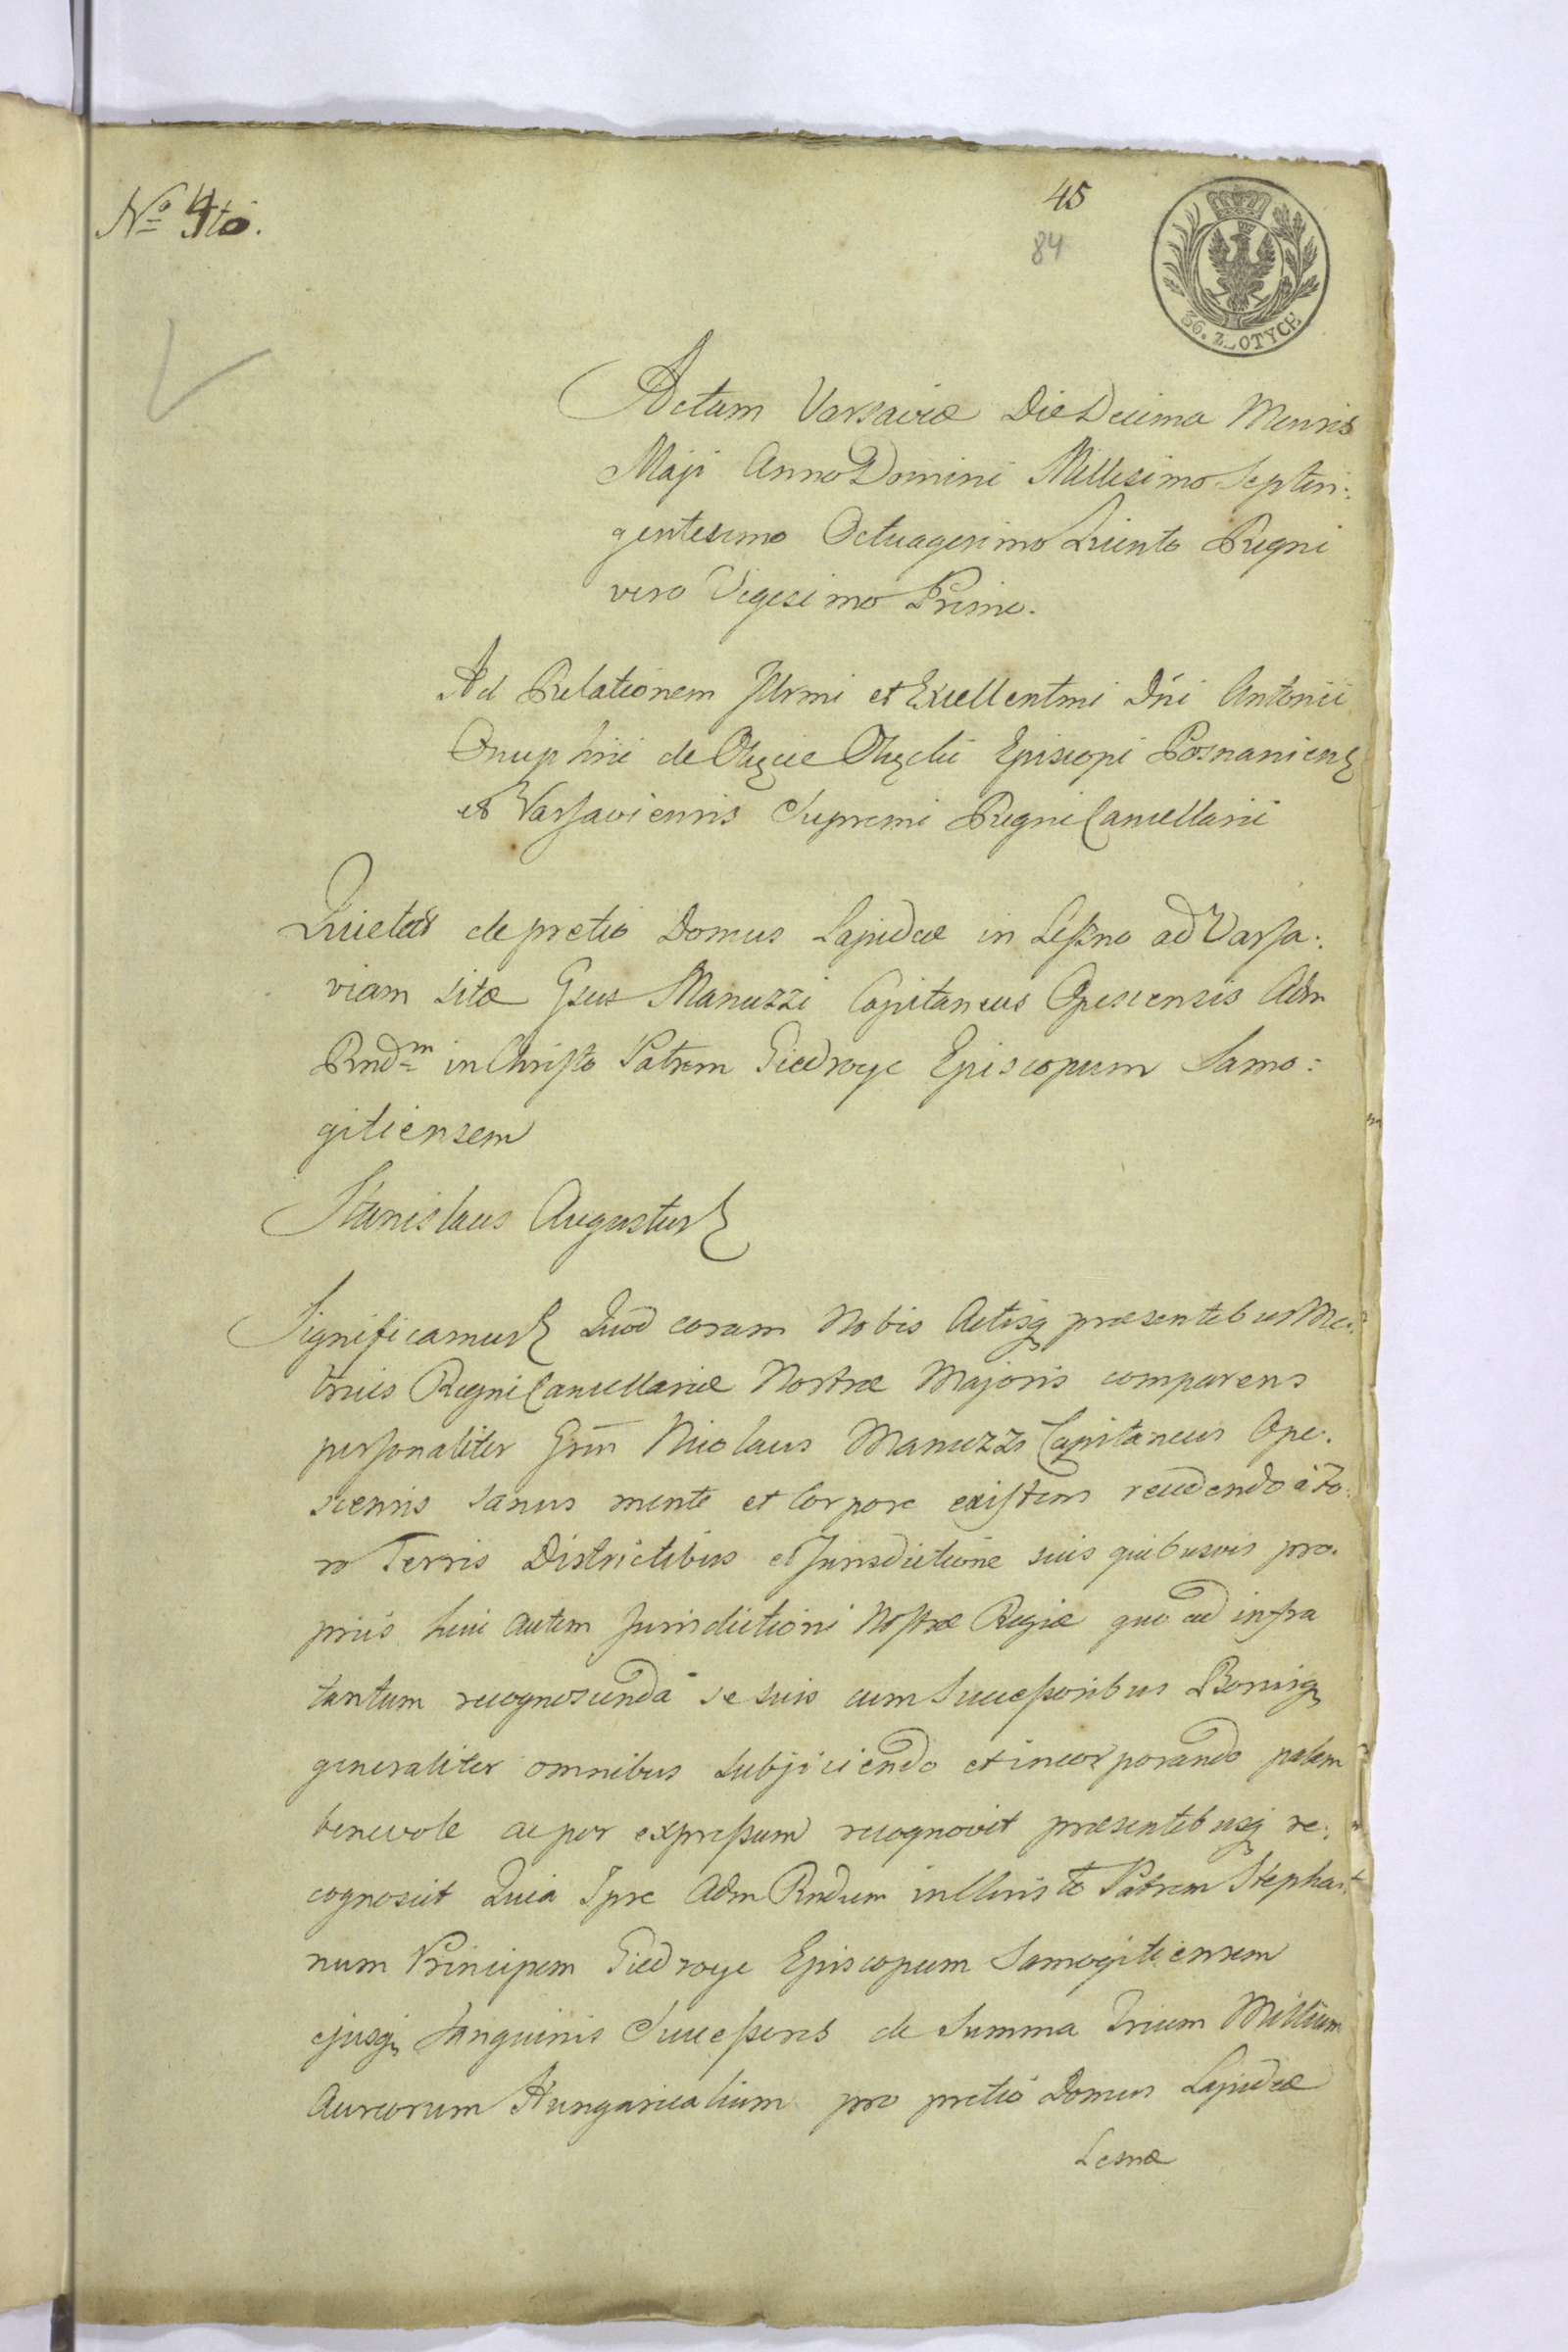 Nº 4to.
45
84
36. ZŁOTYCH
Actum Varsaviæ Die Decima Mensis
Maji Anno Domini Millesimo Septin:
gentesimo Octuagesimo Quinto Regni
vero Vigesimo Primo.
Ad Relationem Illrmi et Excellentmi Dni Antonii
Onuphrii de Okęcie Okęcki Episcopi Posnaniens
et Varsaviensis Supremi Regni Cancellarii
Quietat de pretio Domus Lapideæ in Leszno ad Varsa:
viam sitæ Gsus Manuzzi Capitaneus Opescensis Adm
Rndm in Christo Patrem Giedroyc Episcopum Samo:
gitiensem
Stanislaus Augustus
Significamus Quod coram Nobis Actisq præsentibus Me:
tricis Regni Cancellariæ Nostræ Majoris comparens
personaliter Gsus Nicolaus Manuzzi Capitaneus Ope:
scensis sanus mente et Corpore existens recedendo à Fo:
ro Terris Districtibus et Jurisdictione suis quibusvis pro:
priis huic autem Jurisdictioni Nostræ Regiæ quo ad infra
tantum recognoscenda se suis cum Successoribus Bonisq
generaliter omnibus subjiciendo et incorporando palam
benevole ac per expressum recognovit præsentibusq re:
cognoscit Quia Ipse Adm Rndum in Christo Patrem Stepha:
num Principem Giedroyc Episcopum Samogitiensem
ejusq Sanguinis Successores de Summa Trium Millium
Aureorum Hungaricalium pro pretio Domus Lapideæ
Lesnæ